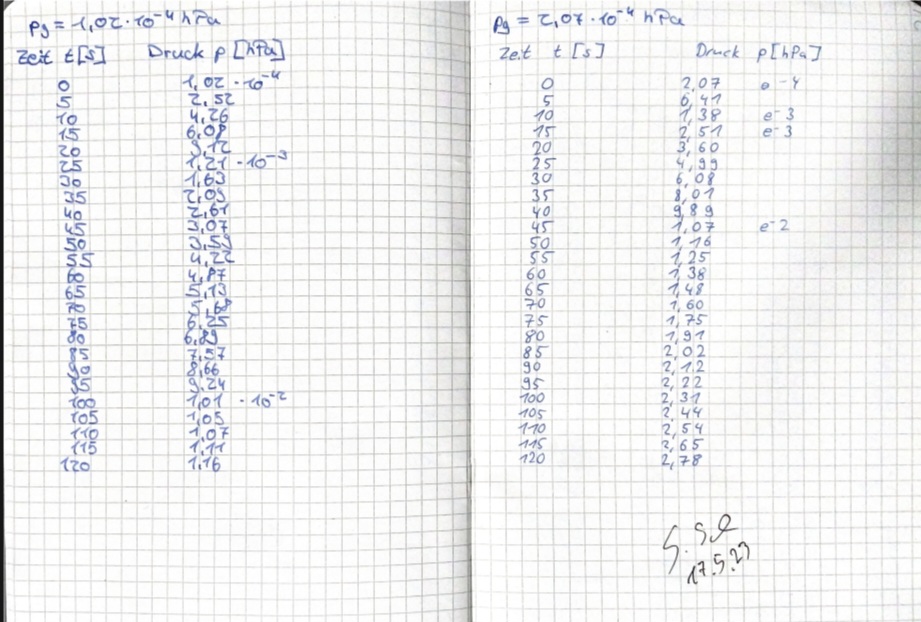 pg = 1,02 · 10⁻⁴ hPa
Zeit t [s] Druck p [hPa]
0 1,02 · 10⁻⁴
5 2,52
10 4,26
15 6,08
20 9,12
25 1,21 · 10⁻³
30 1,63
35 2,09
40 2,61
45 3,07
50 3,59
55 4,22
60 4,87
65 5,13
70 5,68
75 6,25
80 6,89
85 7,57
90 8,66
95 9,24
100 1,01 · 10⁻²
105 1,05
110 1,07
115 1,11
120 1,16
pg = 2,07 · 10⁻⁴ hPa
Zeit t [s] Druck p [hPa]
0 2,07 e-4
5 6,41
10 1,38 e-3
15 2,51 e-3
20 3,60
25 4,99
30 6,08
35 8,01
40 9,89
45 1,07 e-2
50 1,16
55 1,25
60 1,38
65 1,48
70 1,60
75 1,75
80 1,91
85 2,02
90 2,12
95 2,22
100 2,31
105 2,44
110 2,54
115 2,65
120 2,78
17.5.23